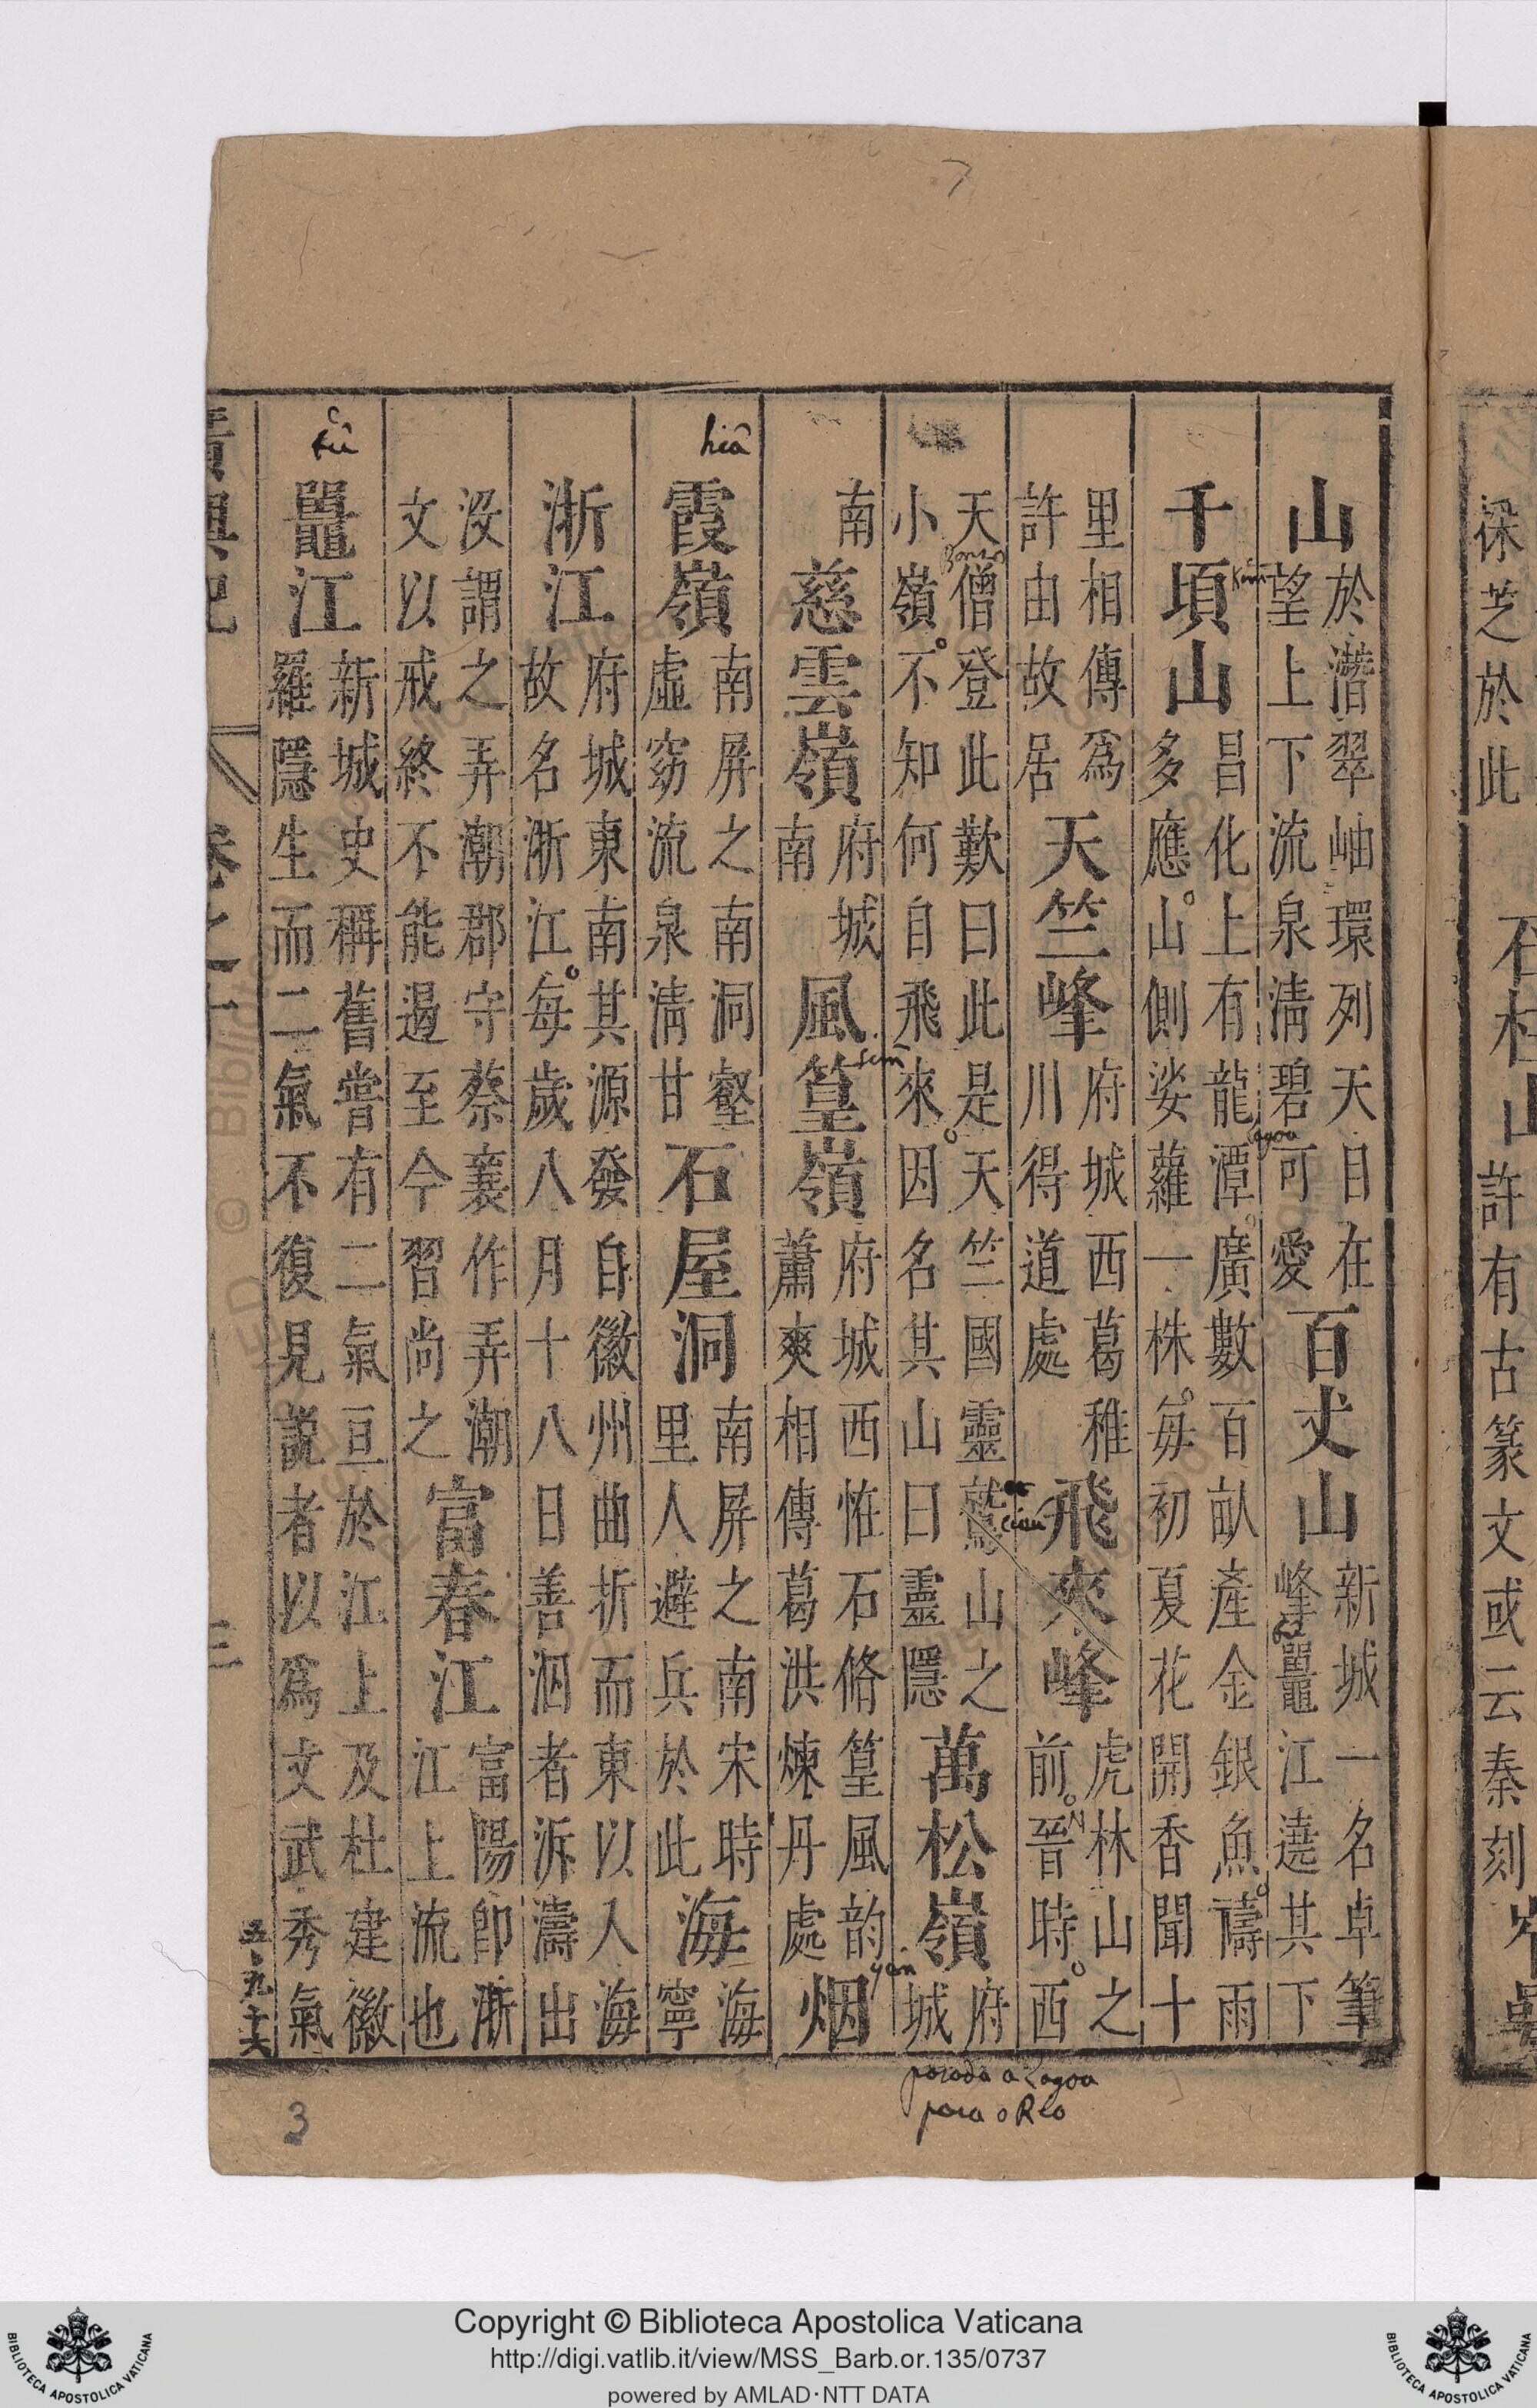 祿芝於此
石柱山
許有古篆文或云秦刻
山
於潛翠岫環列天目在
望上下流泉清碧可愛
百丈山
新城一名卓筆
峰鼉江遶其下
千頃山
昌化上有龍潭廣數百畝產金銀魚禱雨
多應山側娑蘿一株每初夏花開香聞十
里相傳爲
許由故居
天竺峰
府城西葛稚
川得道處
飛來峰
虎林山之
前晉時西
天僧登此歎曰此是天竺國靈鷲山之
小嶺不知何自飛來因名其山曰靈隱
萬松嶺
府
城
南
慈雲嶺
府城
南
風篁嶺
府城西恠石脩篁風韵
蕭爽相傳葛洪煉丹處
烟
霞嶺
南屏之南南洞壑
虛窈流泉清甘
石屋洞
南屏之南宋時
里人避兵於此
海
海
寧
浙江
府城東南其源發自徽州曲折而東以入海
故名浙江每歲八月十八日善泅者泝濤出
沒謂之弄潮郡守蔡襄作弄潮
文以戒終不能遏至今習尚之
富春江
富陽即浙
江上流也
鼉江
新城史稱舊嘗有二氣亘於江上及杜建徽
羅隱生而二氣不復見說者以爲文武秀氣
hiâ
yen
lagoa
porada a Lagoa
para o Rio
3
Copyright © Biblioteca Apostolica Vaticana
http://digi.vatlib.it/view/MSS_Barb.or.135/0737
powered by AMLAD·NTT DATA
BIBLIOTECA APOSTOLICA VATICANA
BIBLIOTECA APOSTOLICA VATICANA